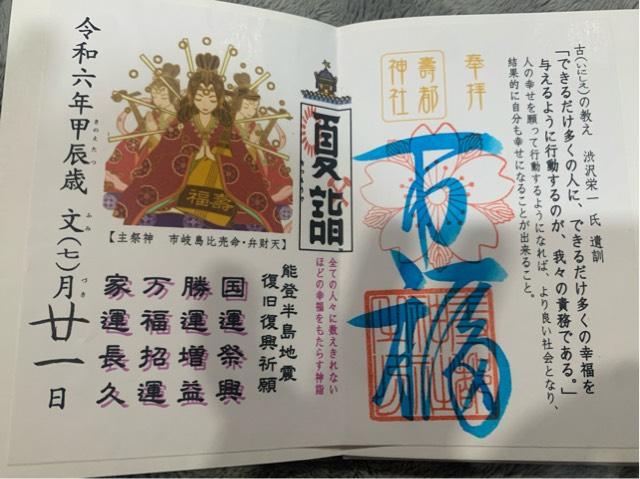 古(いにしえ)の教え 渋沢栄一氏 遺訓
「できるだけ多くの人に、できるだけ多くの幸福を
与えるように行動するのが、我々の責務である。」
人の幸せを願って行動するようになれば、より良い社会となり、
結果的に自分も幸せになることが出来ること。
奉拝
壽都
神社
万福
夏詣
全ての人々に数えきれない
ほどの幸福をもたらす神詣
福壽
【主祭神 市岐島比売命・弁財天】
能登半島地震
復旧復興祈願
国運祭興
勝運増益
万福招運
家運長久
令和六年甲辰歳 文(七)月廿一日
きのえたつ
ふみ
づき